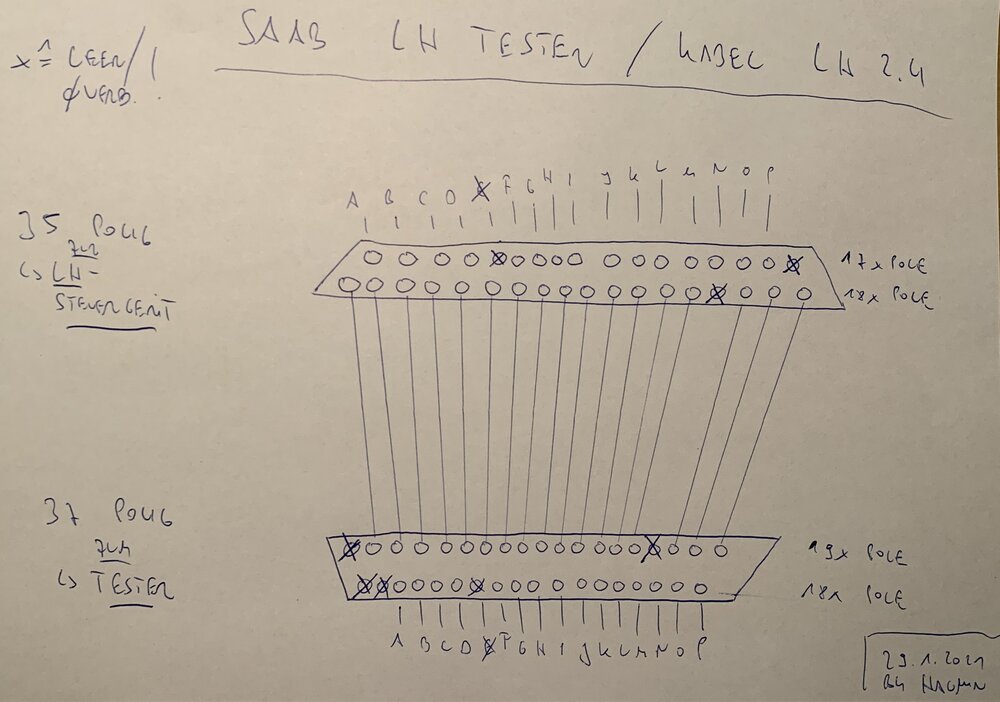 SAAB LH TESTER / KABEL LH 2.4
x ≙ LEER / !
∅ VERB.
A B C D E F G H I J K L M N O P
35 POLIG
zur
↳ LH-
STEUERGERÄT
17x POLE
18x POLE
37 POLIG
zum
↳ TESTER
19x POLE
18x POLE
A B C D E F G H I J K L M N O P
29.1.2021